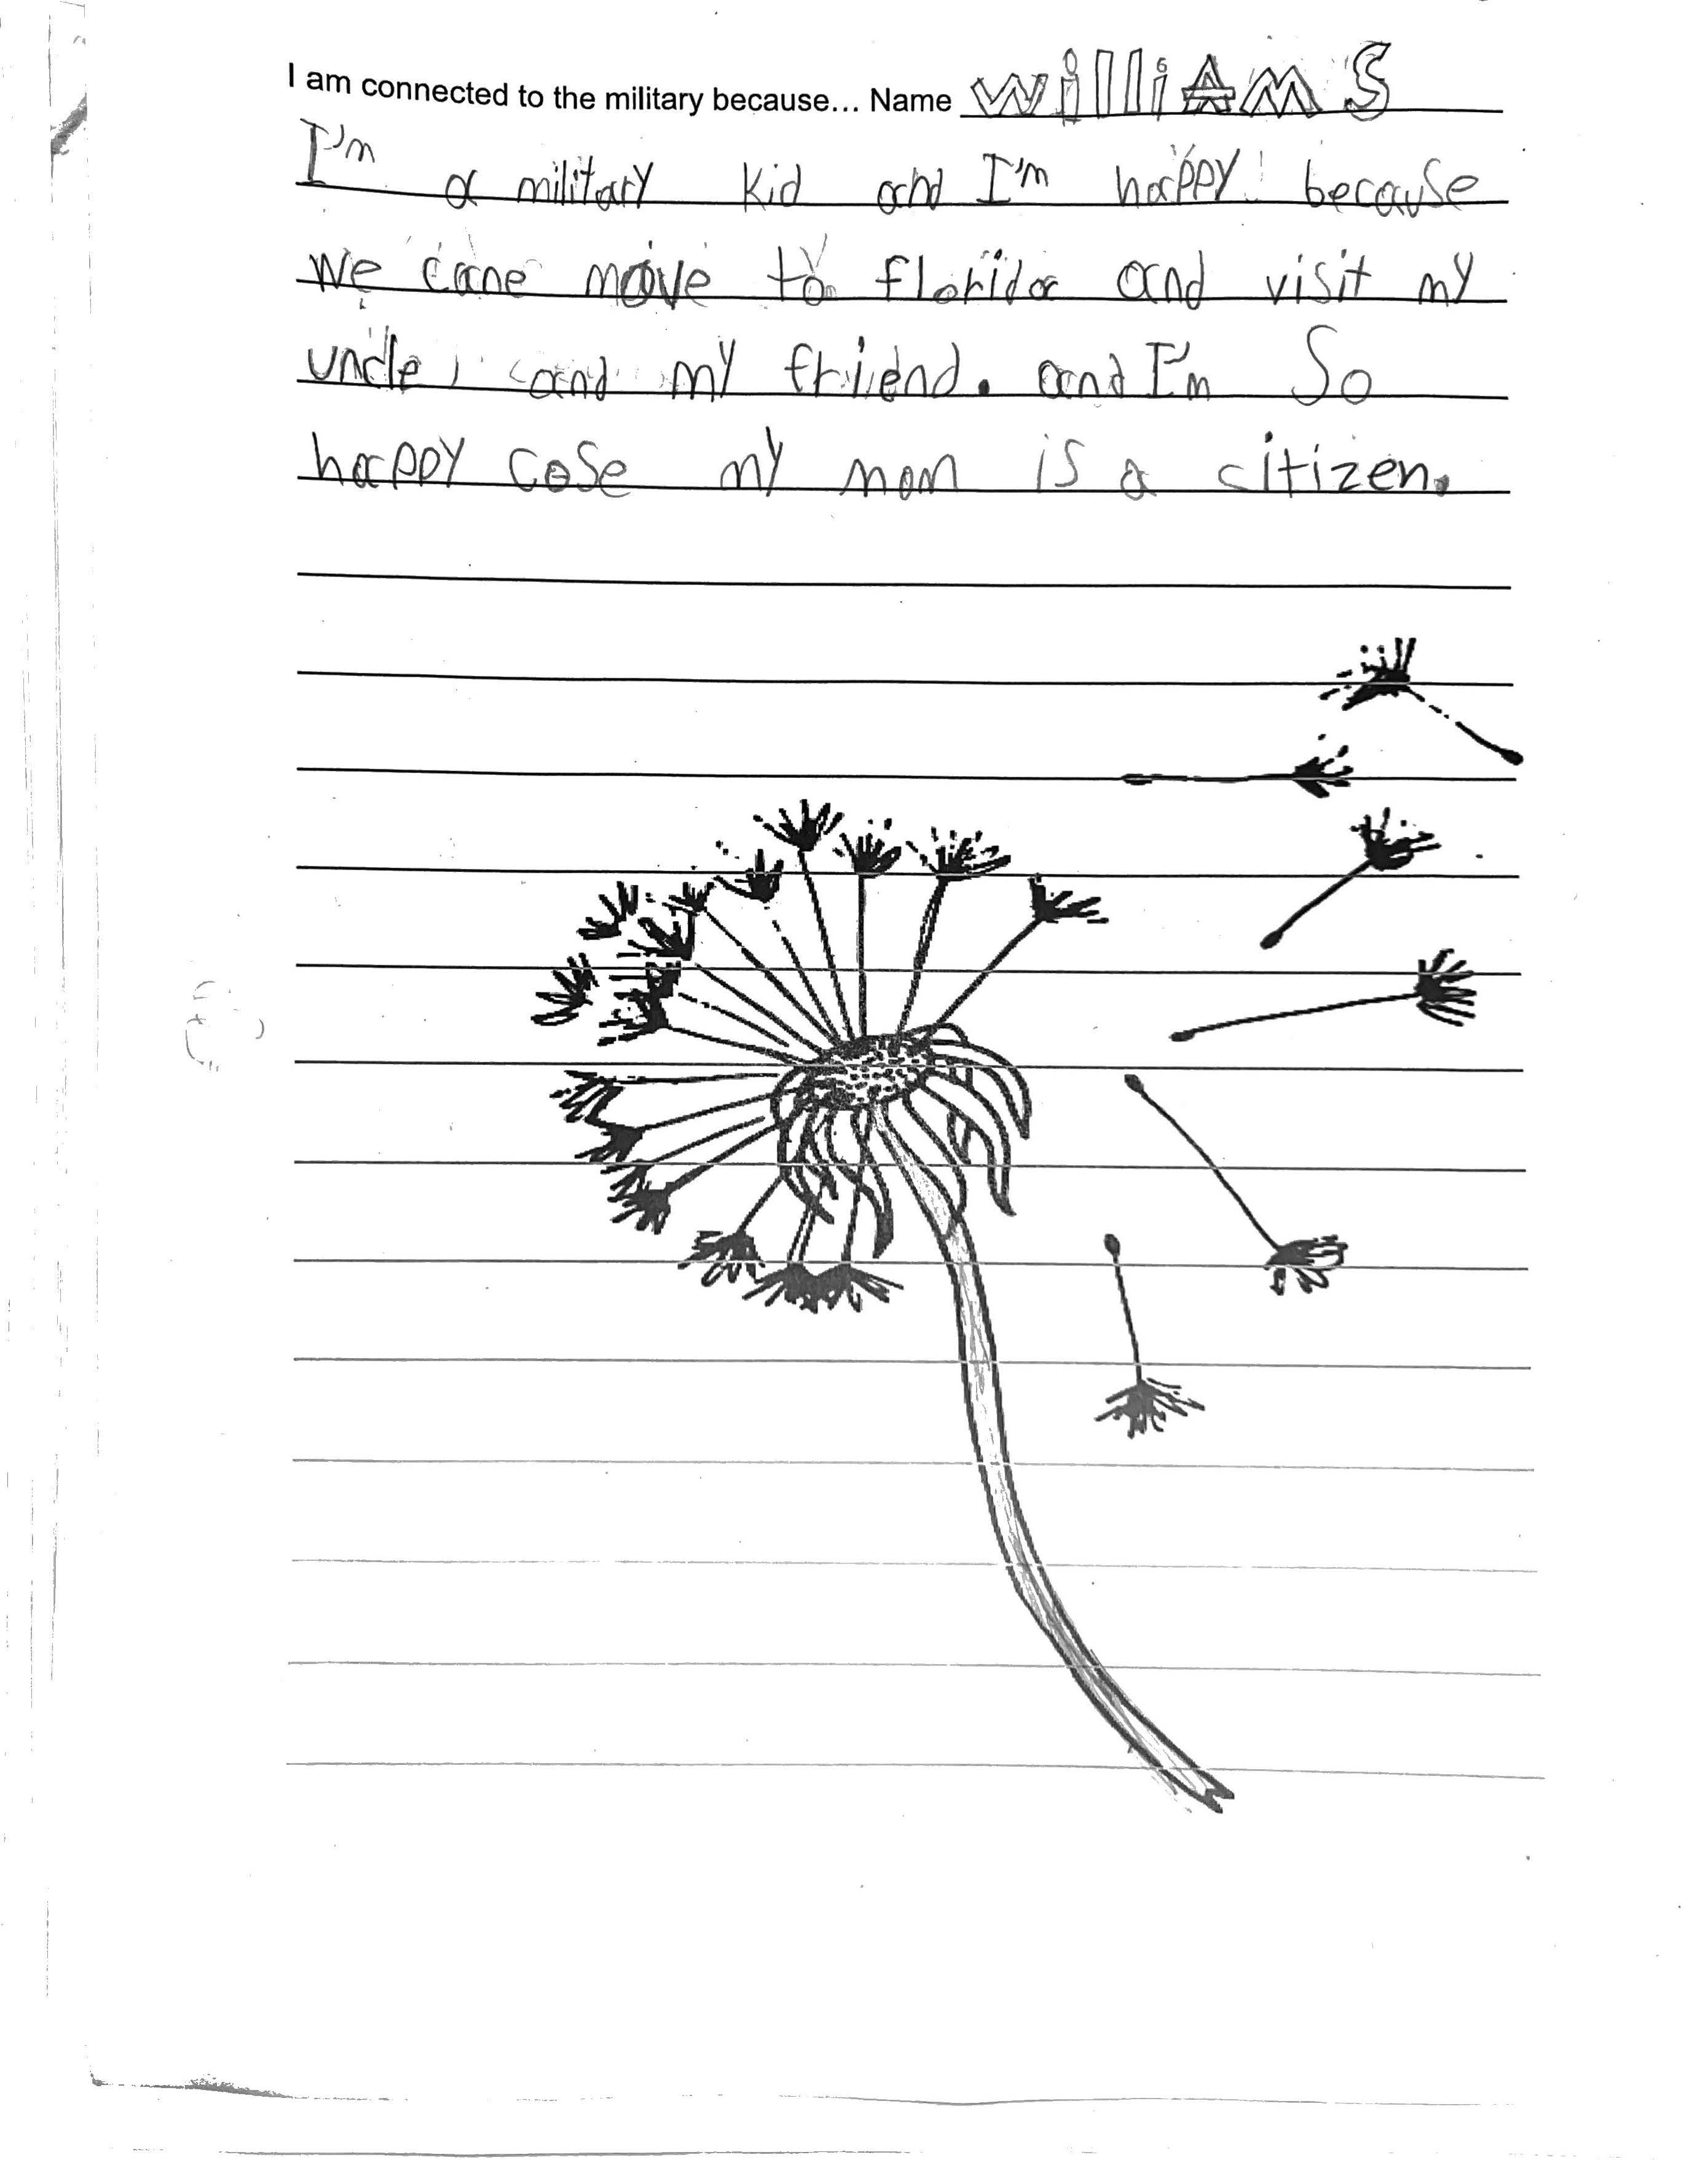 I am connected to the military because... Name williAm S
I'm a military kid and I'm happy because
we cane move to florida and visit my
uncle, and my friend. and I'm So
happy cose my mom is a citizen.